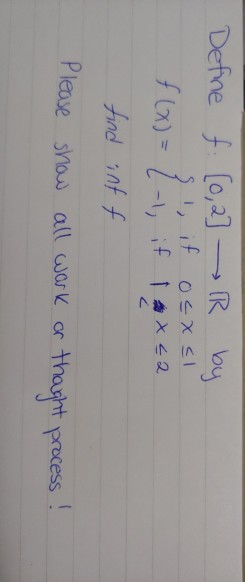 Define f: [0,2] → ℝ by
f(x) = { 1, if 0 ≤ x ≤ 1
-1, if 1 < x ≤ 2
find inf f
Please show all work or thought process!